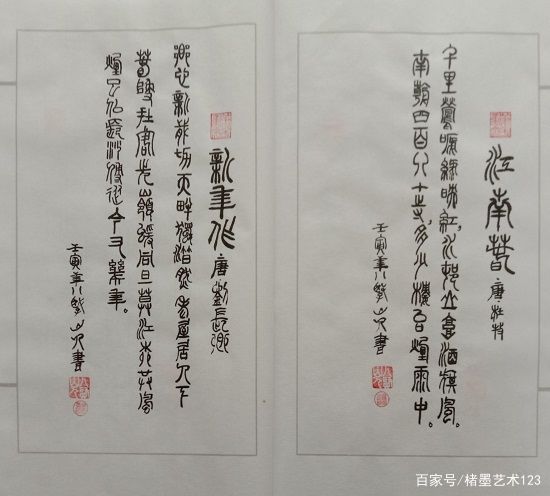 江南萅·唐·杜牧
千里鶯嗁綠映紅,水邨山郭酒旗風。
南朝四百八十寺,多少樓台煙雨中。
壬寅年八山人書
新年作 唐 劉長卿
鄉心新歲切天畔獨潸然老至居人下
萅歸在客先嶺猨同旦莫江柳共風
煙已似長沙傅從今又幾年。
壬寅年八山人書
百家号/楮墨艺术123